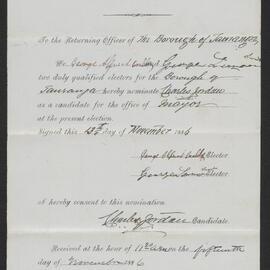 To the Returning Officer of The Borough of Tauranga
We George Alfred and George
two duly qualified electors for the Borough of
Tauranga hereby nominate Charles Jordan
as a candidate for the office of Mayor
at the present election.
Signed this 15th day of November 1886
George Alfred Elector.
George Elector.
I hereby consent to this nomination.
Charles Jordan Candidate.
Received at the hour of 11 on the fifteenth
day of November 1886